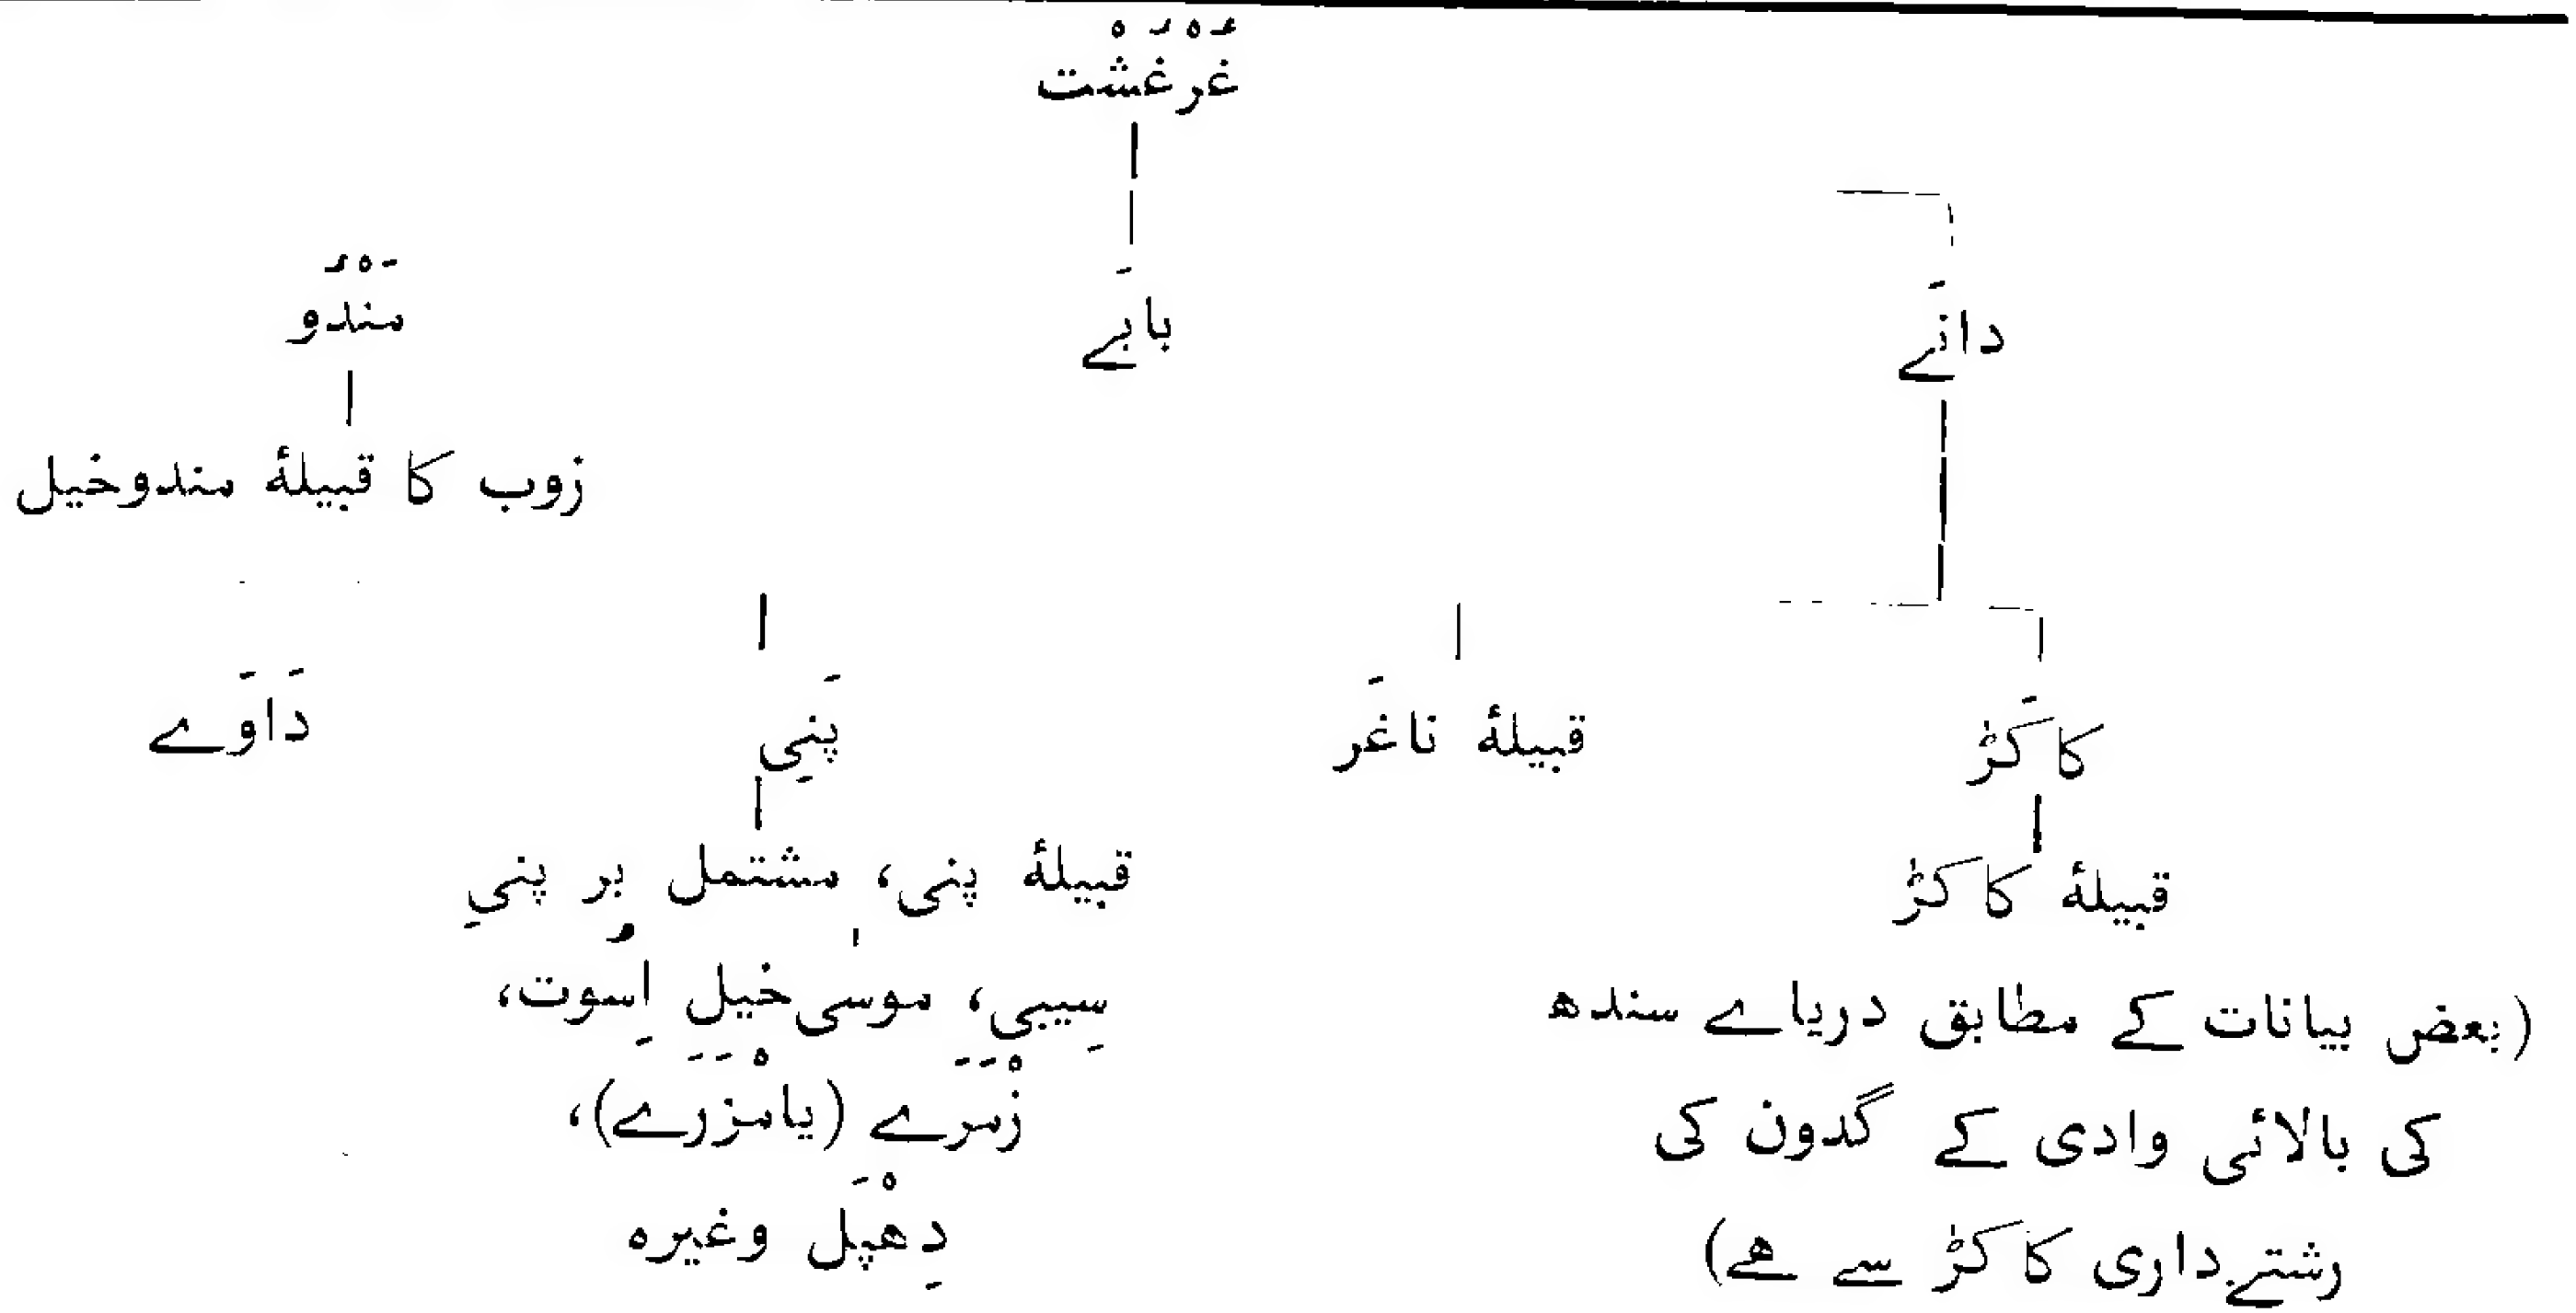 غُرْغُشْت
دانَے
بابَے
مَنْدُو
زوب کا قبیلۂ مندوخیل
کاکَڑ
قبیلۂ ناغَر
پَنِی
دَاوَے
قبیلۂ کاکڑ
(بعض بیانات کے مطابق دریاے سندھ
کی بالائی وادی کے گدون کی
رشتےداری کاکڑ سے ھے)
قبیلۂ پنی، مشتمل بر پنیِ
سِیبی، موسٰی خیل اِسُوت،
زْمَرَے (یا مْزَرَے)،
دِھْپَل وغیرہ